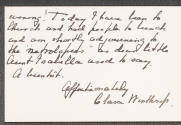 wrong! Today I have been to
church and had people to lunch
and am shortly adjourning to
the Metropolis - as dear little
Aunt Isabella used to say.
A bientôt.
Affectionately
Clara Winthrop.